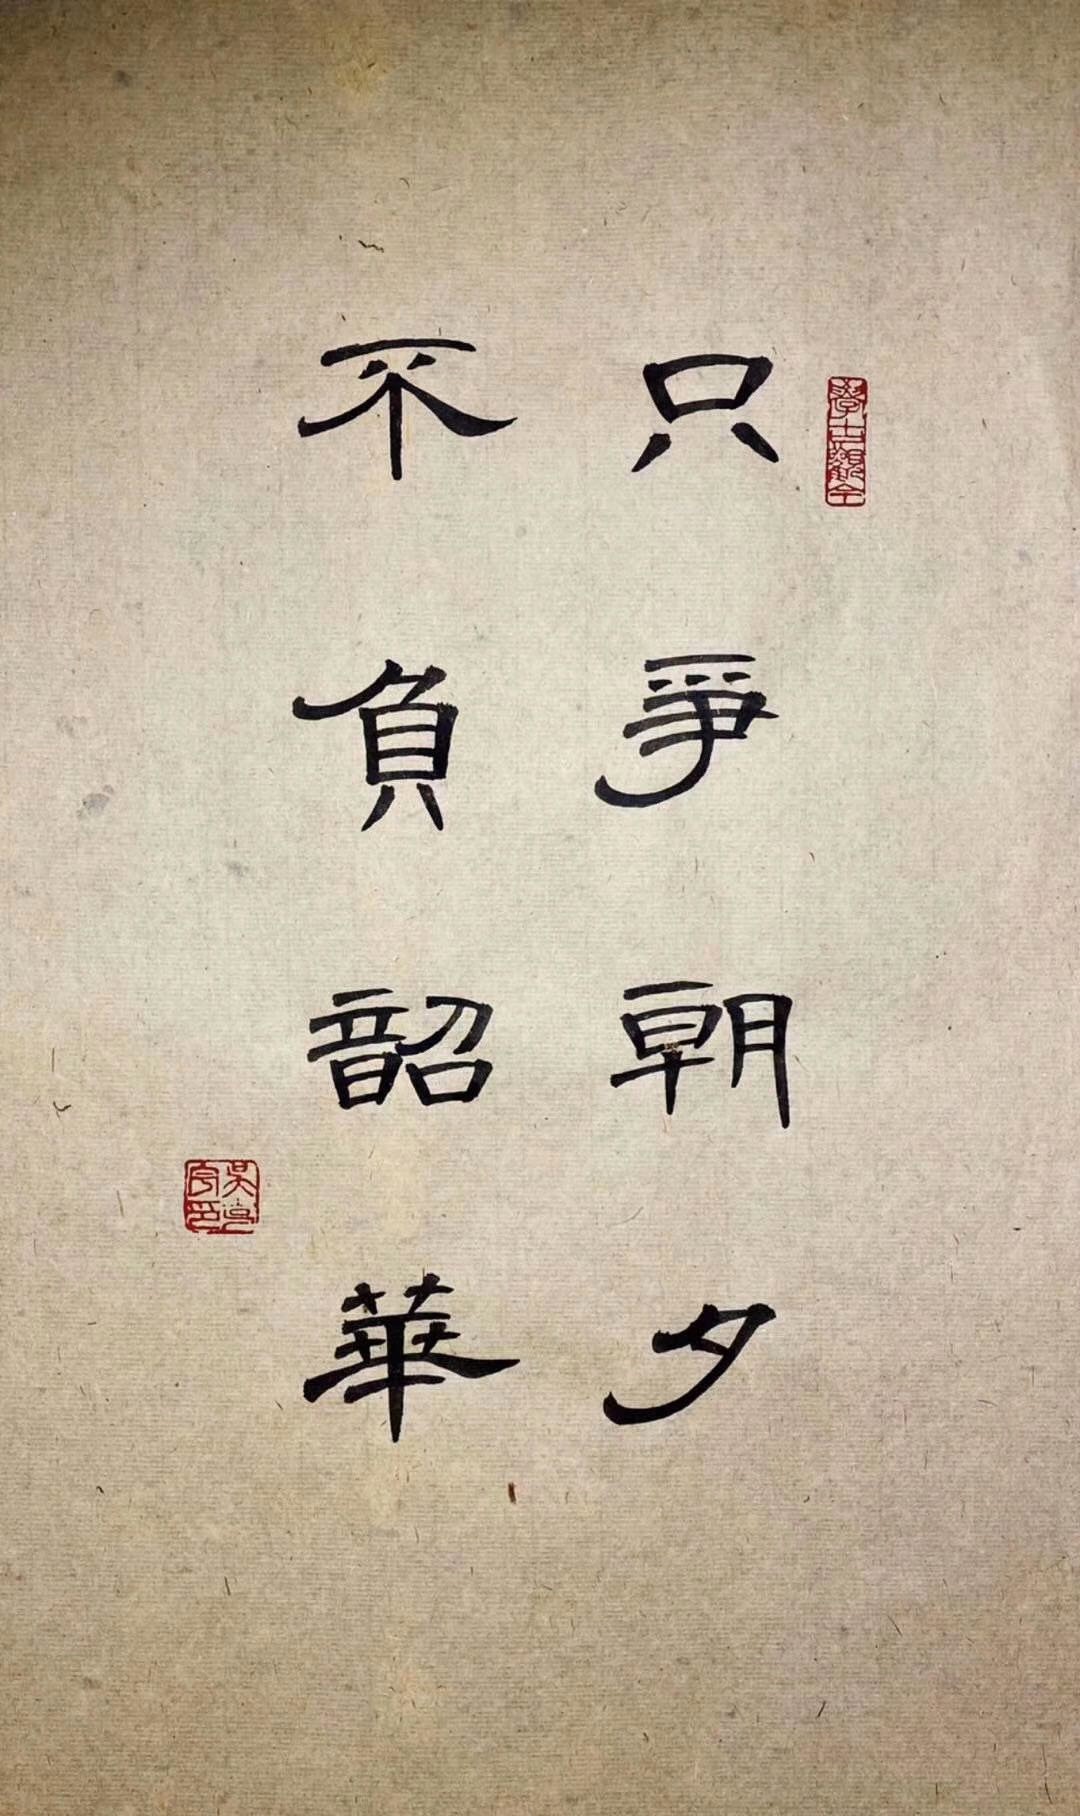 只爭朝夕
不負韶華